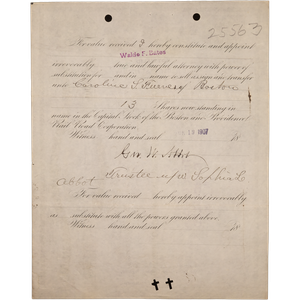 25563
For value received I hereby constitute and appoint
Waldo F. Bates
irrevocably true and lawful attorney with power of
substitution for and in name to sell assign and transfer
unto Caroline Boston
13 Shares now standing in
name in the Capital Stock of the Boston and Providence
Rail Road Corporation.
Witness hand and seal 18
Geo. W. Abbot
Abbot Trustee u/w
For value received hereby appoint irrevocably
as substitute with all the powers granted above
Witness hand and seal 18